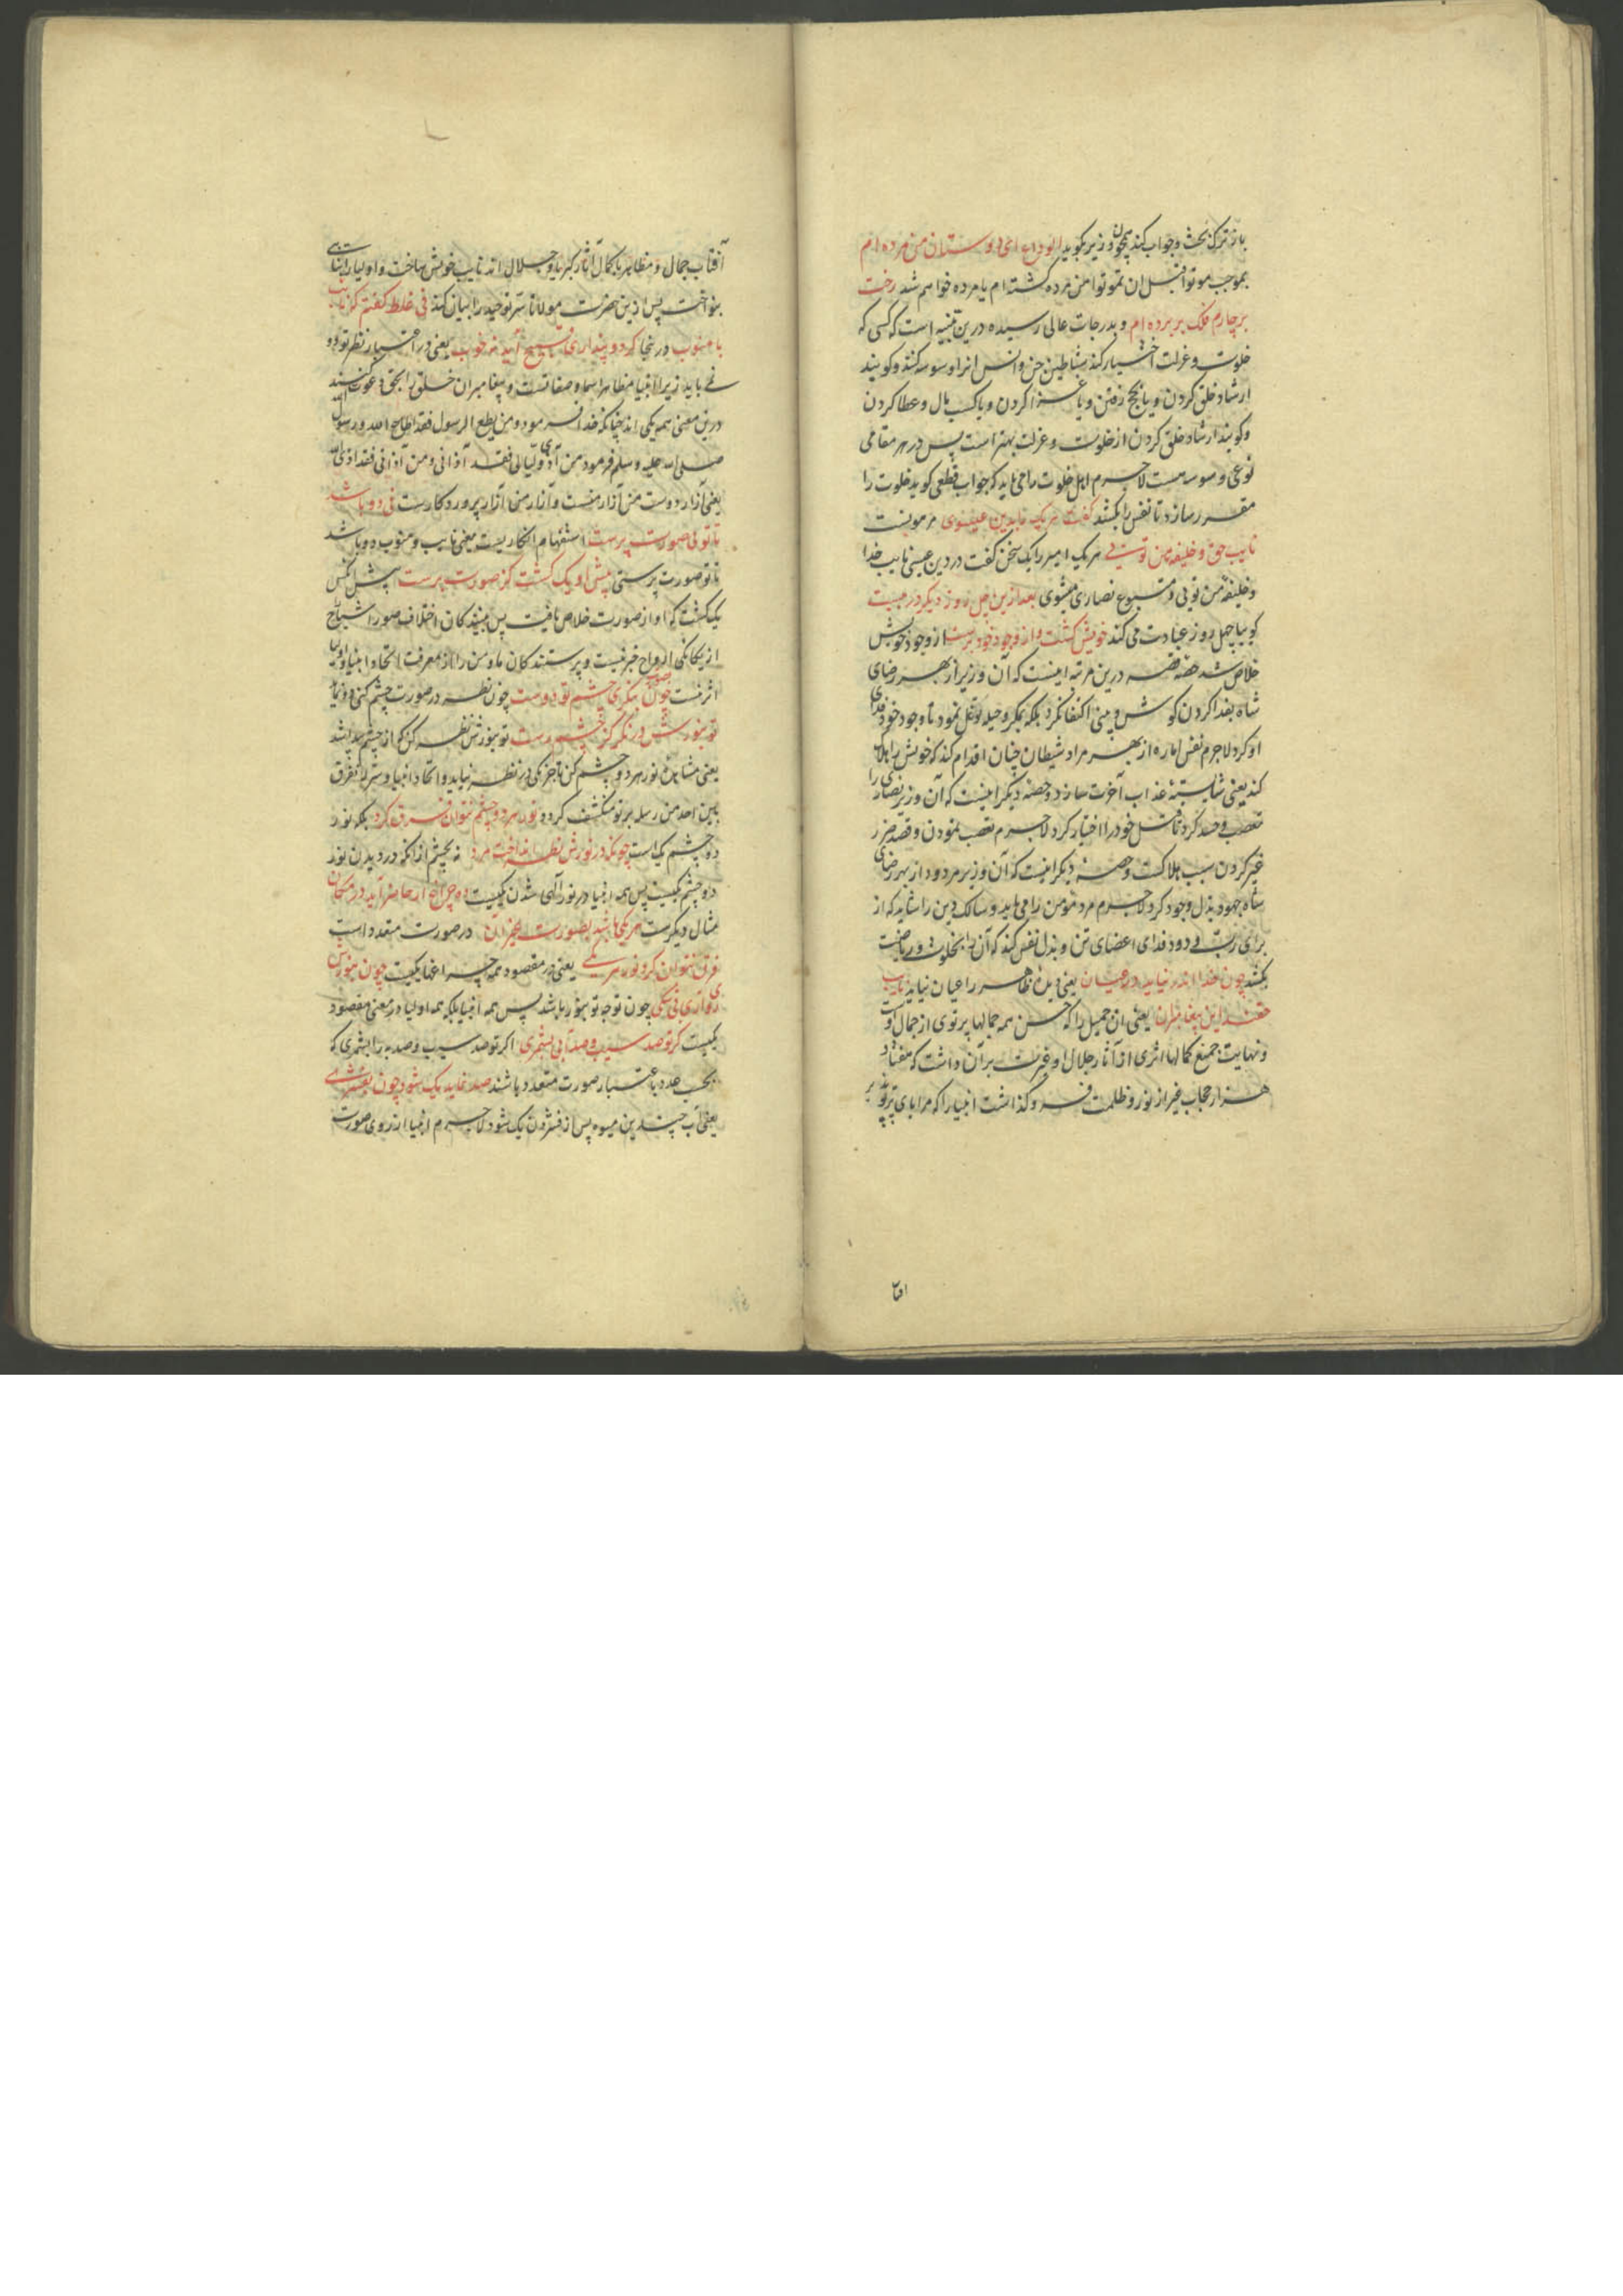 باز ترک بحث و جواب کند همچون وزیر بکوید الوداع ای دوستان من مرده ام
بموجب موتوا قبل ان تموتوا من مرده کشته ام یا مرده خواهم شد رخت
بر چارم فلک بر برده ام و بدرجات عالی رسیده درین تنبیه است که کسی که
خلوت و عزلت اختیار کند شیاطین جن و انس انرا وسوسه کنند و کویند
ارشاد خلق کردن و یا بحج رفتن و یا غزا کردن و یا کسب مال و عطا کردن
و کویند ارشاد خلق کردن از خلوت و عزلت بهتر است پس در هر مقامی
نوعی وسوسه هست لاجرم اهل خلوت را می باید که جواب قطعی کوید خلوت را
مقرر سازد تا نفس را بکشد کفت هر یک را بدین عیسوی
نایب حق و خلیفه من توئی هر یک امیر را یک سخن کفت در دین عیسی نایب خدا
و خلیفه من توئی و متبوع نصاری مثنوی بعد ازین چل روز دیکر در ببست
کویا چهل روز عبادت می کند خویش کشت و از وجود خود برست از وجود خویش
خلاص شد حصه قصه درین مرتبه اینست که آن وزیر از بهر رضای
شاه بفدا کردن کوش و بینی اکتفا نکرد بلکه بمکر و حیله توغل نمود تا وجود خود فدای
او کرد لاجرم نفس اماره از بهر مراد شیطان چنان اقدام کند که خویش را هلاک
کند یعنی شایسته عذاب آخرت سازد و حصه دیکر اینست که آن وزیر نصاری را
تعصب و حسد کرد تا قتل خود را اختیار کرد لاجرم تعصب نمودن و قصد ضرر
غیر کردن سبب هلاکست و حصه دیکر اینست که آن وزیر مردود از بهر رضای
شاه جهود بذل وجود کرد لاجرم مرد مؤمن را می باید و سالک دین را شاید که از
برای رب ودود فدای اعضای تن و بذل نفس کند که آن را بخلوت و ریاضت
بکشد چون خدا اندر نیاید در عیان یعنی دیده ظاهر را عیان نیاید نایب
حقند این پیغامبران یعنی ان جمیل را که حسن همه جمالها پرتوی از جمال اوست
و نهایت جمیع کمالها اثری از آثار جلال او غیرت بر آن داشت که هفتاد
هزار حجاب غیر از نور و ظلمت فرو کذاشت انبیا را که مرایای پرتو پذیر
افتا
آفتاب جمال و مظاهر با کمال آثار کبریا و جلال اند نایب خویش ساخت و اولیا را
بنواخت پس ازین حضرت مولانا سر توحید را بیان کند نی غلط کفتم که نایب
با منوب در نجا کر دو پنداری قبیح آید نه خوب یعنی در اعتبار نظر تو دو
نمی باید زیرا انبیا مظاهر اسما و صفاتست و پیغامبران خلق را بحق دعوت کنند
درین معنی همه یکی اند چنانکه خدا فرمود و من یطع الرسول فقد اطاع الله و رسول الله
صلی الله علیه و سلم فرمود من آذی ولیا لی فقد آذانی و من آذانی فقد اذی الله
یعنی آزار دوست من آزار منست و آزار من آزار پروردکارست نی دو باشد
تا توئی صورت پرست استفهام انکاریست یعنی نایب و منوب دو باشد
تا تو صورت پرستی پیش او یک کشت کز صورت برست پیش انکس
یک کشت که او از صورت خلاص یافت پس بینندکان اختلاف صور اشباح
از یکانکی ارواح خبر نیست و پرستندکان ما و من را از معرفت اتحاد انبیا و اولیا
اثر نیست چون بصورت بنکری چشم تو دوست چون نظر در صورت چشم کنی دو نماید
تو بنورش در نکر کز چشم رست تو بنورش نظر کن که از چشم پیدا شد
یعنی مشاهده نور هر دو چشم کن تا جز یکی در نظر نیاید و اتحاد انبیا و سر لا نفرق
بین احد من رسله بر تو منکشف کردد نور هر دو چشم نتوان فرق کرد بلکه نور
دو چشم یک است چونکه در نورش نظر انداخت مرد نه بچشم از انکه در دیدن نور
دو چشم یکیست پس همه انبیا در نور آلهی شدن یکیست ده چراغ ار حاضر آید در مکان
مثال دیکرست هر یکی باشد بصورت غیر آن در صورت متعدد است
فرق نتوان کرد نور هر یکی یعنی در مقصود همه چراغها یکیست چون بنورش
روی آری بی شکی چون توجه تو بنور باشد پس همه انبیا بلکه همه اولیا در معنی مقصود
یکیست کر تو صد سیب و صد آبی بشمری اکر تو صد سیب و صد به را بشمری که
بحسب عدد باعتبار صورت متعدد باشند صد نماید یک شود چون بفشری
یعنی آب چندین میوه پس از فشردن یک شود لاجرم انبیا از روی صورت